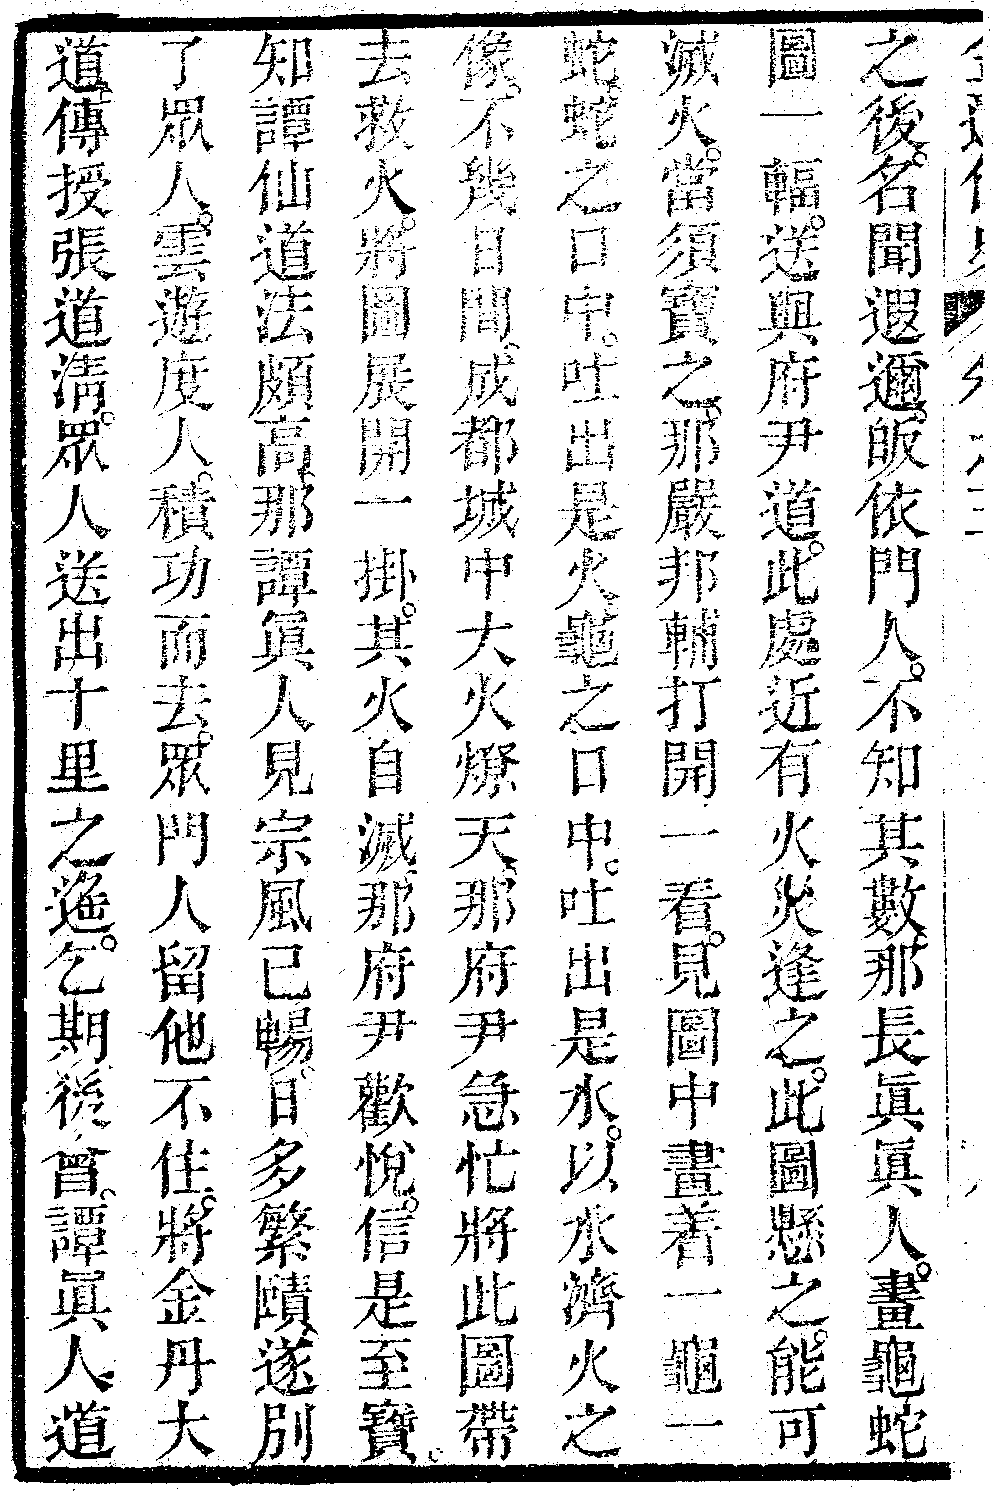 之後。名聞遐邇。皈依門人。不知其數。那長眞眞人。畫龜蛇
圖一輻。送與府尹道。此處近有火災逢之。此圖懸之。能可
滅火。當須寶之。那嚴邦輔打開一看。見圖中畫着一龜一
蛇。蛇之口中。吐出是火。龜之口中。吐出是水。以水濟火之
像。不幾日間。成都城中大火燎天。那府尹急忙將此圖帶
去救火。將圖展開一掛。其火自滅。那府尹歡悅。信是至寶。
知譚仙道法頗高。那譚眞人見宗風已暢。日多繁賾。遂別
了眾人。雲遊度人。積功而去。眾門人留他不住。將金丹大
道。傳授張道淸。眾人送出十里之遙。乞期後會。譚眞人道